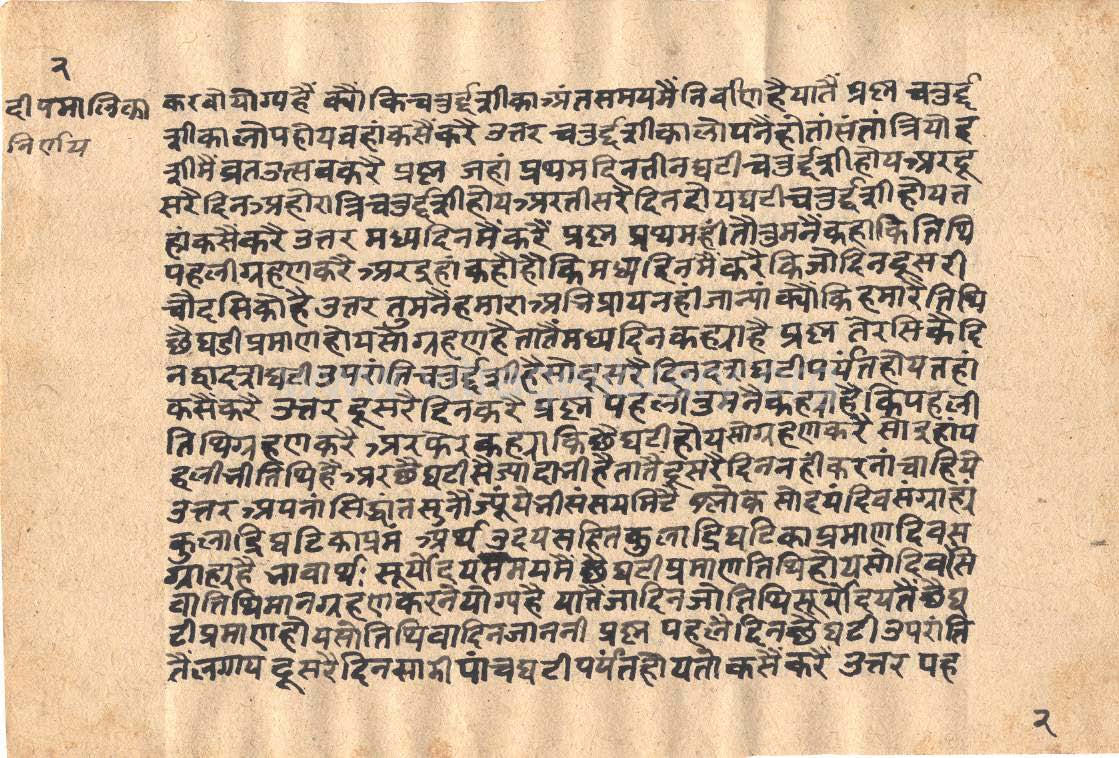 २
दीपमालिका
निर्णय
करवो योग्य हैं क्यौं कि चतुर्द्दशी का अंत समय मैं निर्वाण है यातैं प्रश्न चतुर्द्द
शी का लोप होय वहां कसैं करै उत्तर चतुर्द्दशी का लोप नैं होतां संतां त्रियोद
शी मैं व्रत उत्सव करै प्रश्न जहां प्रथम दिन तीन घटी चतुर्द्दशी होय अर दू
सरै दिन अहोरात्रि चतुर्द्दशी होय अर तीसरै दिन दोय घटी चतुर्द्दशी होय त
हां कसैं करै उत्तर मध्य दिन मैं करैं प्रश्न प्रथम हीं तौ तुमनैं कहा कि तिथि
पहली ग्रहण करै अर इहां कहौ हौ कि मध्य दिन मैं करै कि जो दिन दूसरी
चौदसि को है उत्तर तुमनै हमारा अभिप्राय नहीं जान्यां क्यौं कि हमारै तिथि
छै घडी प्रमाण होय सो ग्रहण है तातैं मध्य दिन कह्या है प्रश्न तेरसि कै दि
न द्वादश घटी उपरांति चतुर्द्दशी है सो दूसरै दिन दश घटी पर्यंत होय तहां
कसैं करै उत्तर दूसरै दिन करै प्रश्न पहली तुमनै कह्या है कि पहली
तिथि ग्रहण करै अर फेर कह्या कि छै घटी होय सो ग्रहण करै सो इहां प
हली भी तिथि है अर छै घटी सै ज्यादा भी है तातै दूसरै दिन नहीं करनां चाहिये
उत्तर अपनां सिद्धांत सुनौं ज्यूं येभी संसय मिटै श्लोक सोदयं दिवसं ग्राह्यं
कुलाद्रि घटिका प्रमं अर्थ उदय सहित कुलाद्रि घटिका प्रमाण दिवस
ग्राह्य है भावार्थ: सूर्योदय समय मैं छै घटी प्रमाण तिथि होय सो दिवसि
वा तिथि मान ग्रहण करने योग्य है यातैं जा दिन जो तिथि सूर्योदय तैं छै घ
टी प्रमाण होय सो तिथि वा दिन जाननी प्रश्न पहलै दिन छै घटी उपरांति
तैं लगाय दूसरै दिन साढी पांच घटी पर्यंत होय तो कसैं करैं उत्तर पह
२